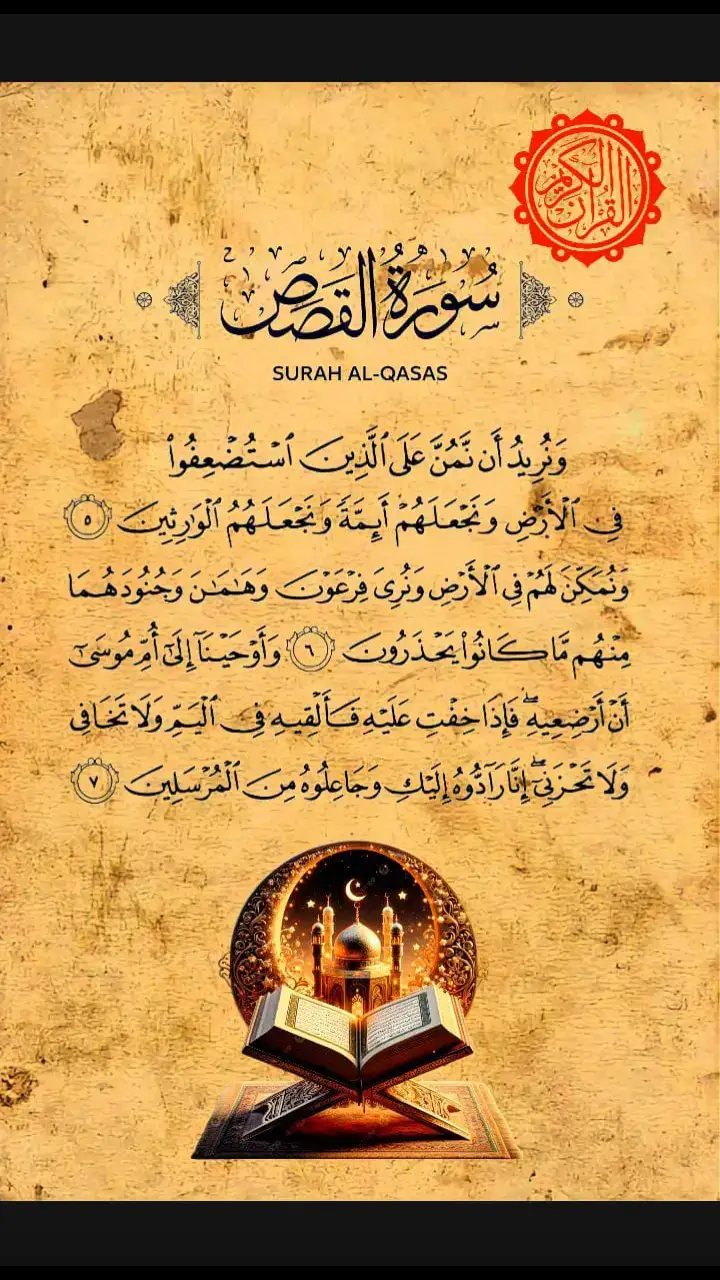 القرآن الكريم
سُورَةُ القَصَصِ
SURAH AL-QASAS
وَنُرِيدُ أَن نَّمُنَّ عَلَى ٱلَّذِينَ ٱسْتُضْعِفُوا۟
فِى ٱلْأَرْضِ وَنَجْعَلَهُمْ أَئِمَّةً وَنَجْعَلَهُمُ ٱلْوَٰرِثِينَ ٥
وَنُمَكِّنَ لَهُمْ فِى ٱلْأَرْضِ وَنُرِىَ فِرْعَوْنَ وَهَـٰمَـٰنَ وَجُنُودَهُمَا
مِنْهُم مَّا كَانُوا۟ يَحْذَرُونَ ٦ وَأَوْحَيْنَآ إِلَىٰٓ أُمِّ مُوسَىٰٓ
أَنْ أَرْضِعِيهِ ۖ فَإِذَا خِفْتِ عَلَيْهِ فَأَلْقِيهِ فِى ٱلْيَمِّ وَلَا تَخَافِى
وَلَا تَحْزَنِىٓ ۖ إِنَّا رَآدُّوهُ إِلَيْكِ وَجَاعِلُوهُ مِنَ ٱلْمُرْسَلِينَ ٧